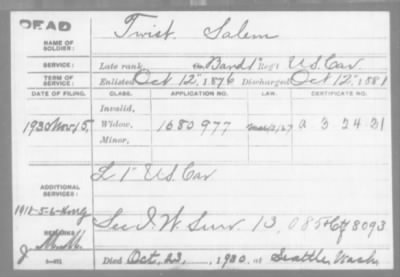 DEAD
NAME OF SOLDIER: Twist, Salem
SERVICE: Late rank, Band 1" Reg't U.S. Cav.
TERM OF SERVICE: Enlisted Oct 12", 1876 Discharged Oct 12", 1881
DATE OF FILING. CLASS. APPLICATION NO. LAW. CERTIFICATE NO.
Invalid,
1930 Nov 15, Widow, 1680977 Mar 3/27 a 3 24 31
Minor,
ADDITIONAL SERVICES: L 1" U.S. Cav
REMARKS: See I. W. Surv. 13,085 Ctf 8093
Died Oct. 23, 1930, at Seattle, Wash